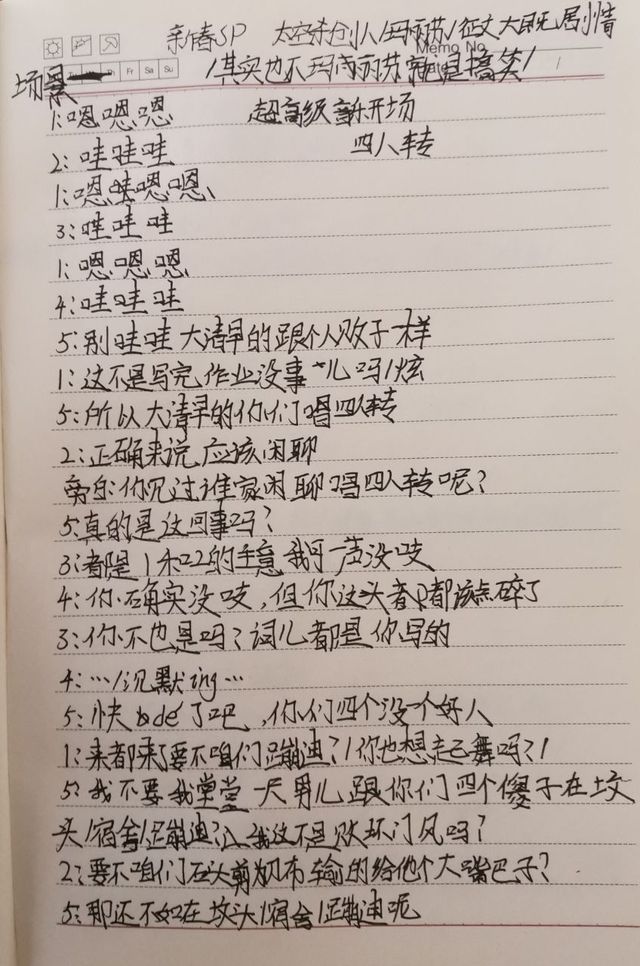 新春SP 太空杀创人/玛丽苏/征文大印无剧情
Memo No.
场景一 Fr Sa Su /其实也不玛丽苏就是搞笑/
1:嗯嗯嗯 超高级音乐开场
2:哇哇哇 四人转
1:嗯哇嗯嗯、
3:哇哇哇
1:嗯嗯嗯
4:哇哇哇
5:别哇哇大清早的跟个人贩子一样
1:这不是写完作业没事儿吗/炫
5:所以大清早的你们唱四人转
2:正确来说应该闲聊
旁白:你见过谁家闲聊唱四人转呢?
5:真的是这回事吗?
3:都是1和2的主意我可一声没吱
4:你确实没吱,但你这头都该点碎了
3:你不也是吗?词儿都是你写的
4:…/沉默ing…
5:快bde了吧,你们四个没一个好人
1:来都来了要不咱们蹦迪?/你也想起舞吗?/
5:我不要我堂堂一尺男儿跟你们四个傻子在坟
头/宿舍/蹦迪?/我这不是败坏门风吗?
2:要不咱们石头剪刀布输的给他个大嘴巴子?
5:那还不如在坟头/宿舍/蹦迪呢